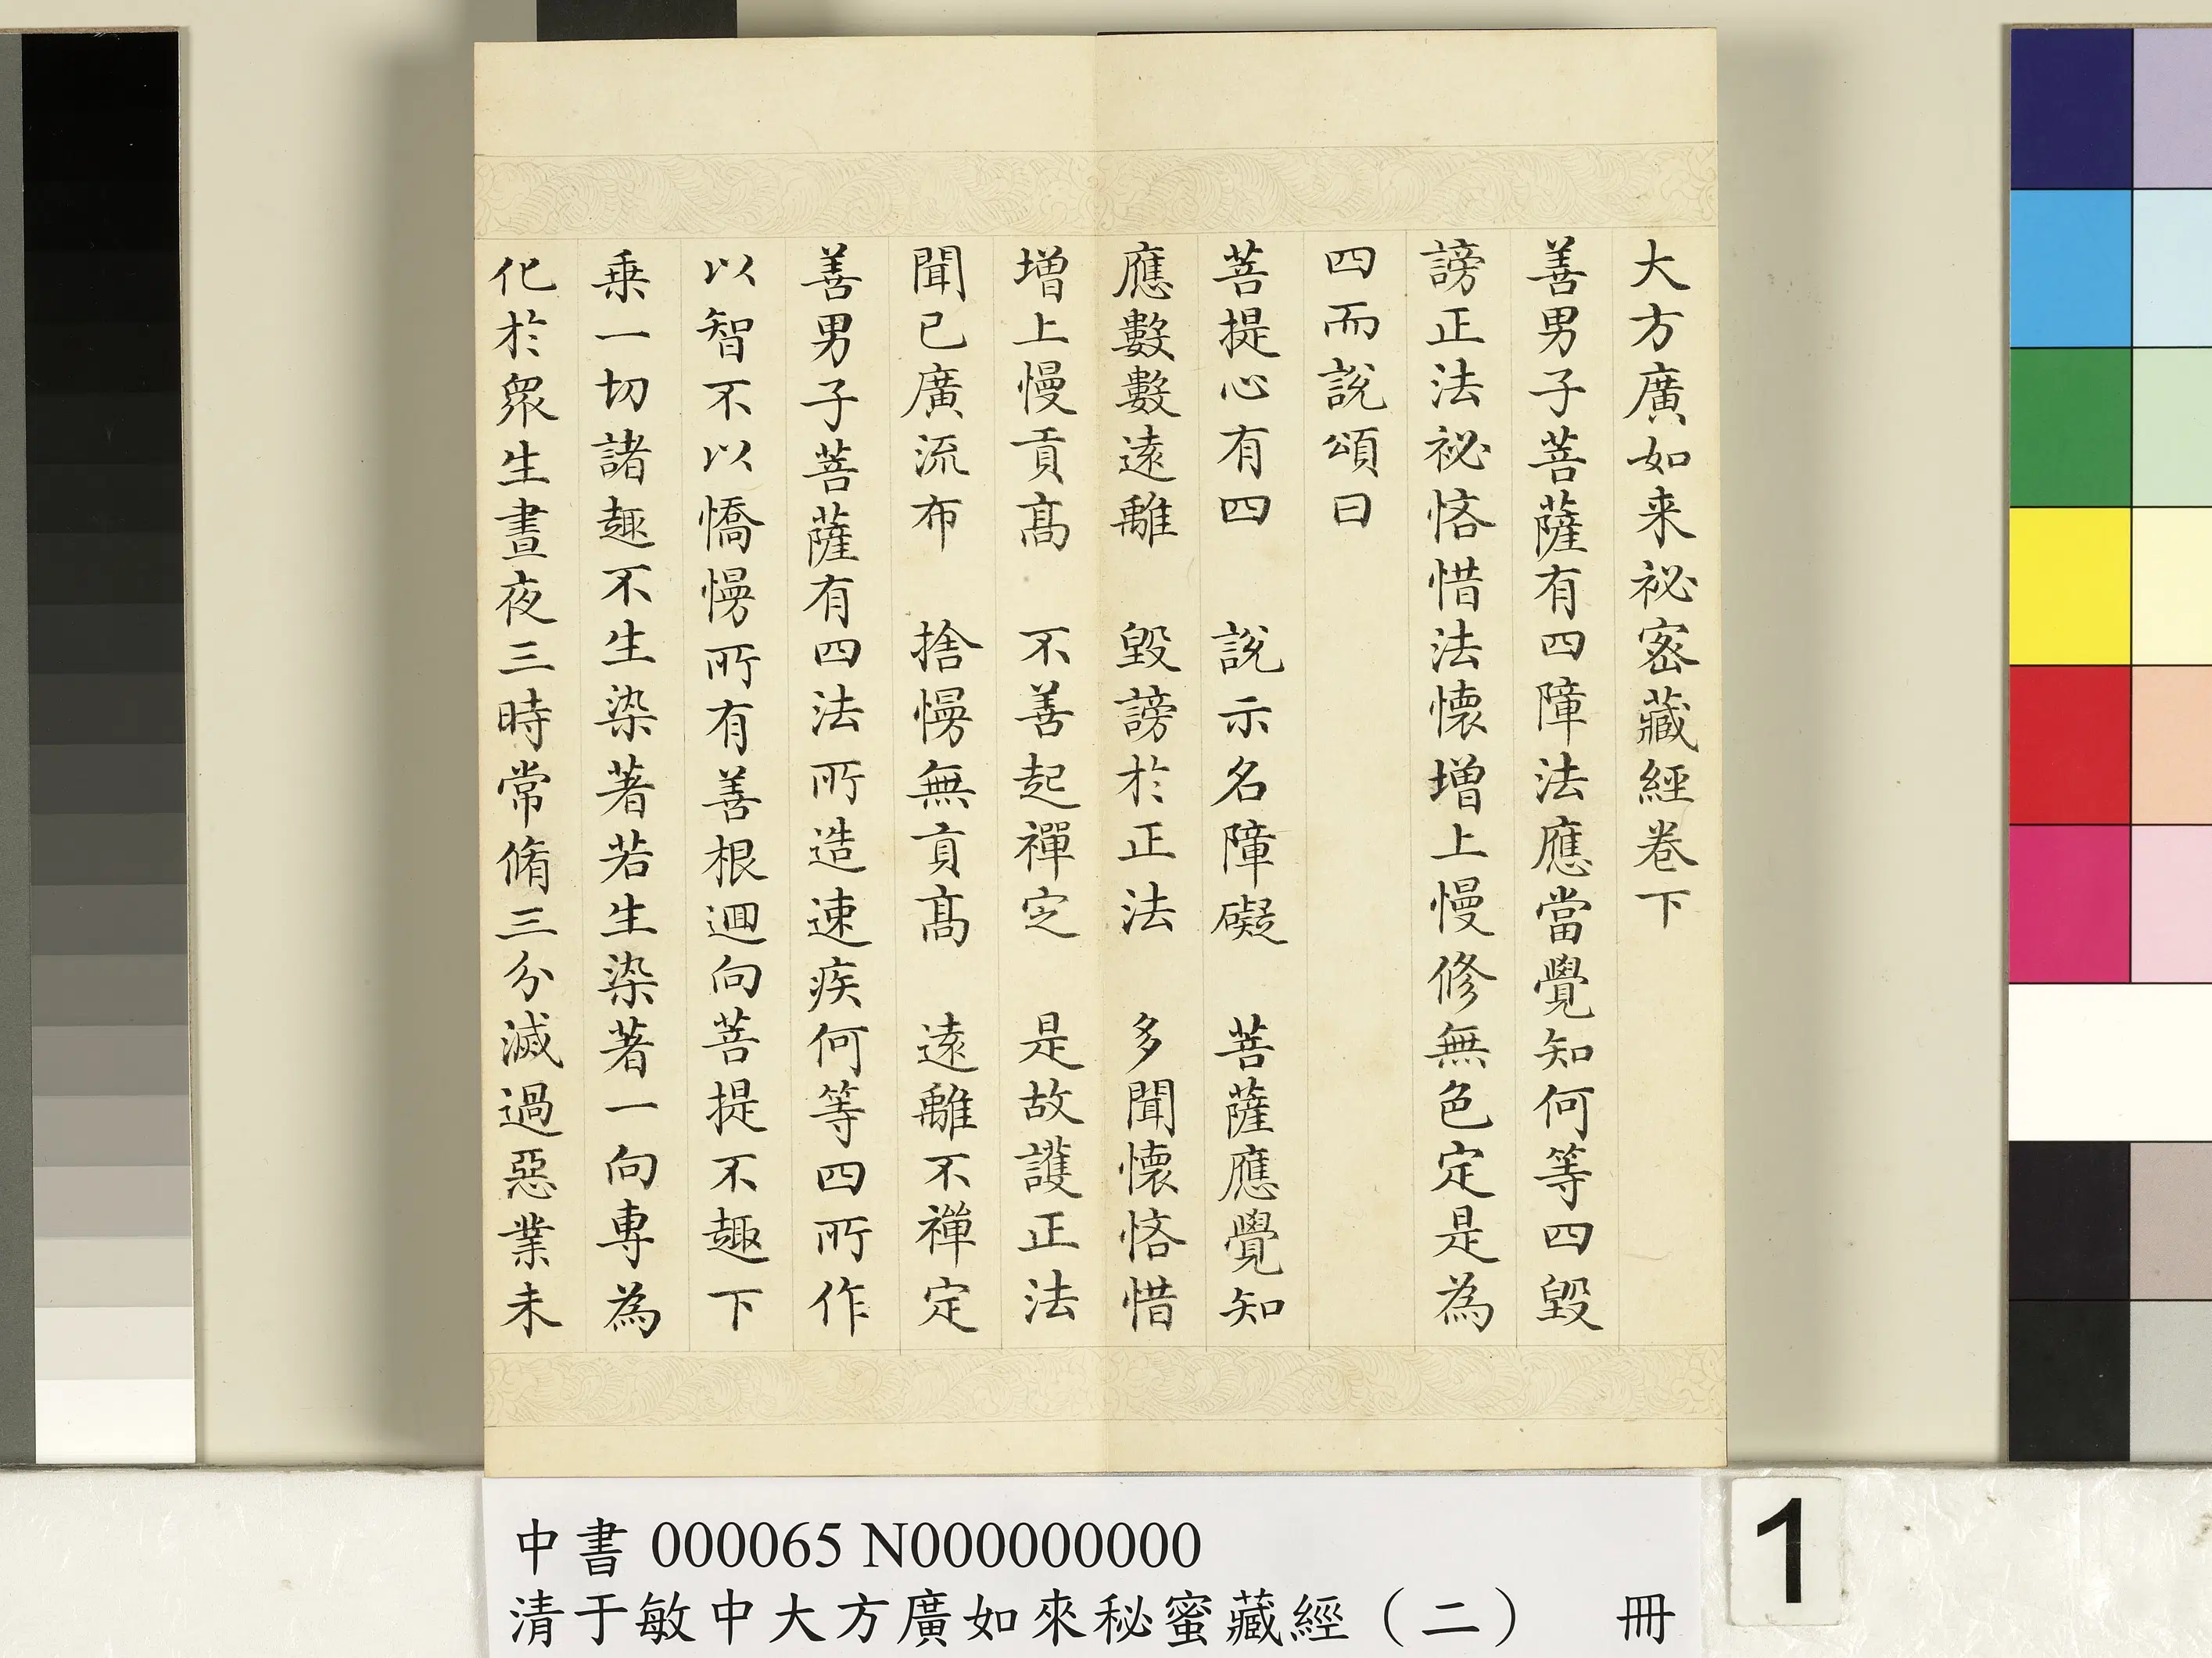 大方廣如来祕密藏經卷下
善男子菩薩有四障法應當覺知何等四毀
謗正法祕悋惜法懷增上慢修無色定是為
四而說頌曰
菩提心有四　說示名障礙　菩薩應覺知
應數數遠離　毀謗於正法　多聞懷悋惜
增上慢貢髙　不善起禪定　是故護正法
聞已廣流布　捨慢無貢髙　遠離不禪定
善男子菩薩有四法所造速疾何等四所作
以智不以憍慢所有善根迴向菩提不趣下
乗一切諸趣不生染著若生染著一向専為
化於衆生晝夜三時常脩三分滅過惡業未
中書 000065 N000000000
清于敏中大方廣如來秘蜜藏經（二）　冊
1